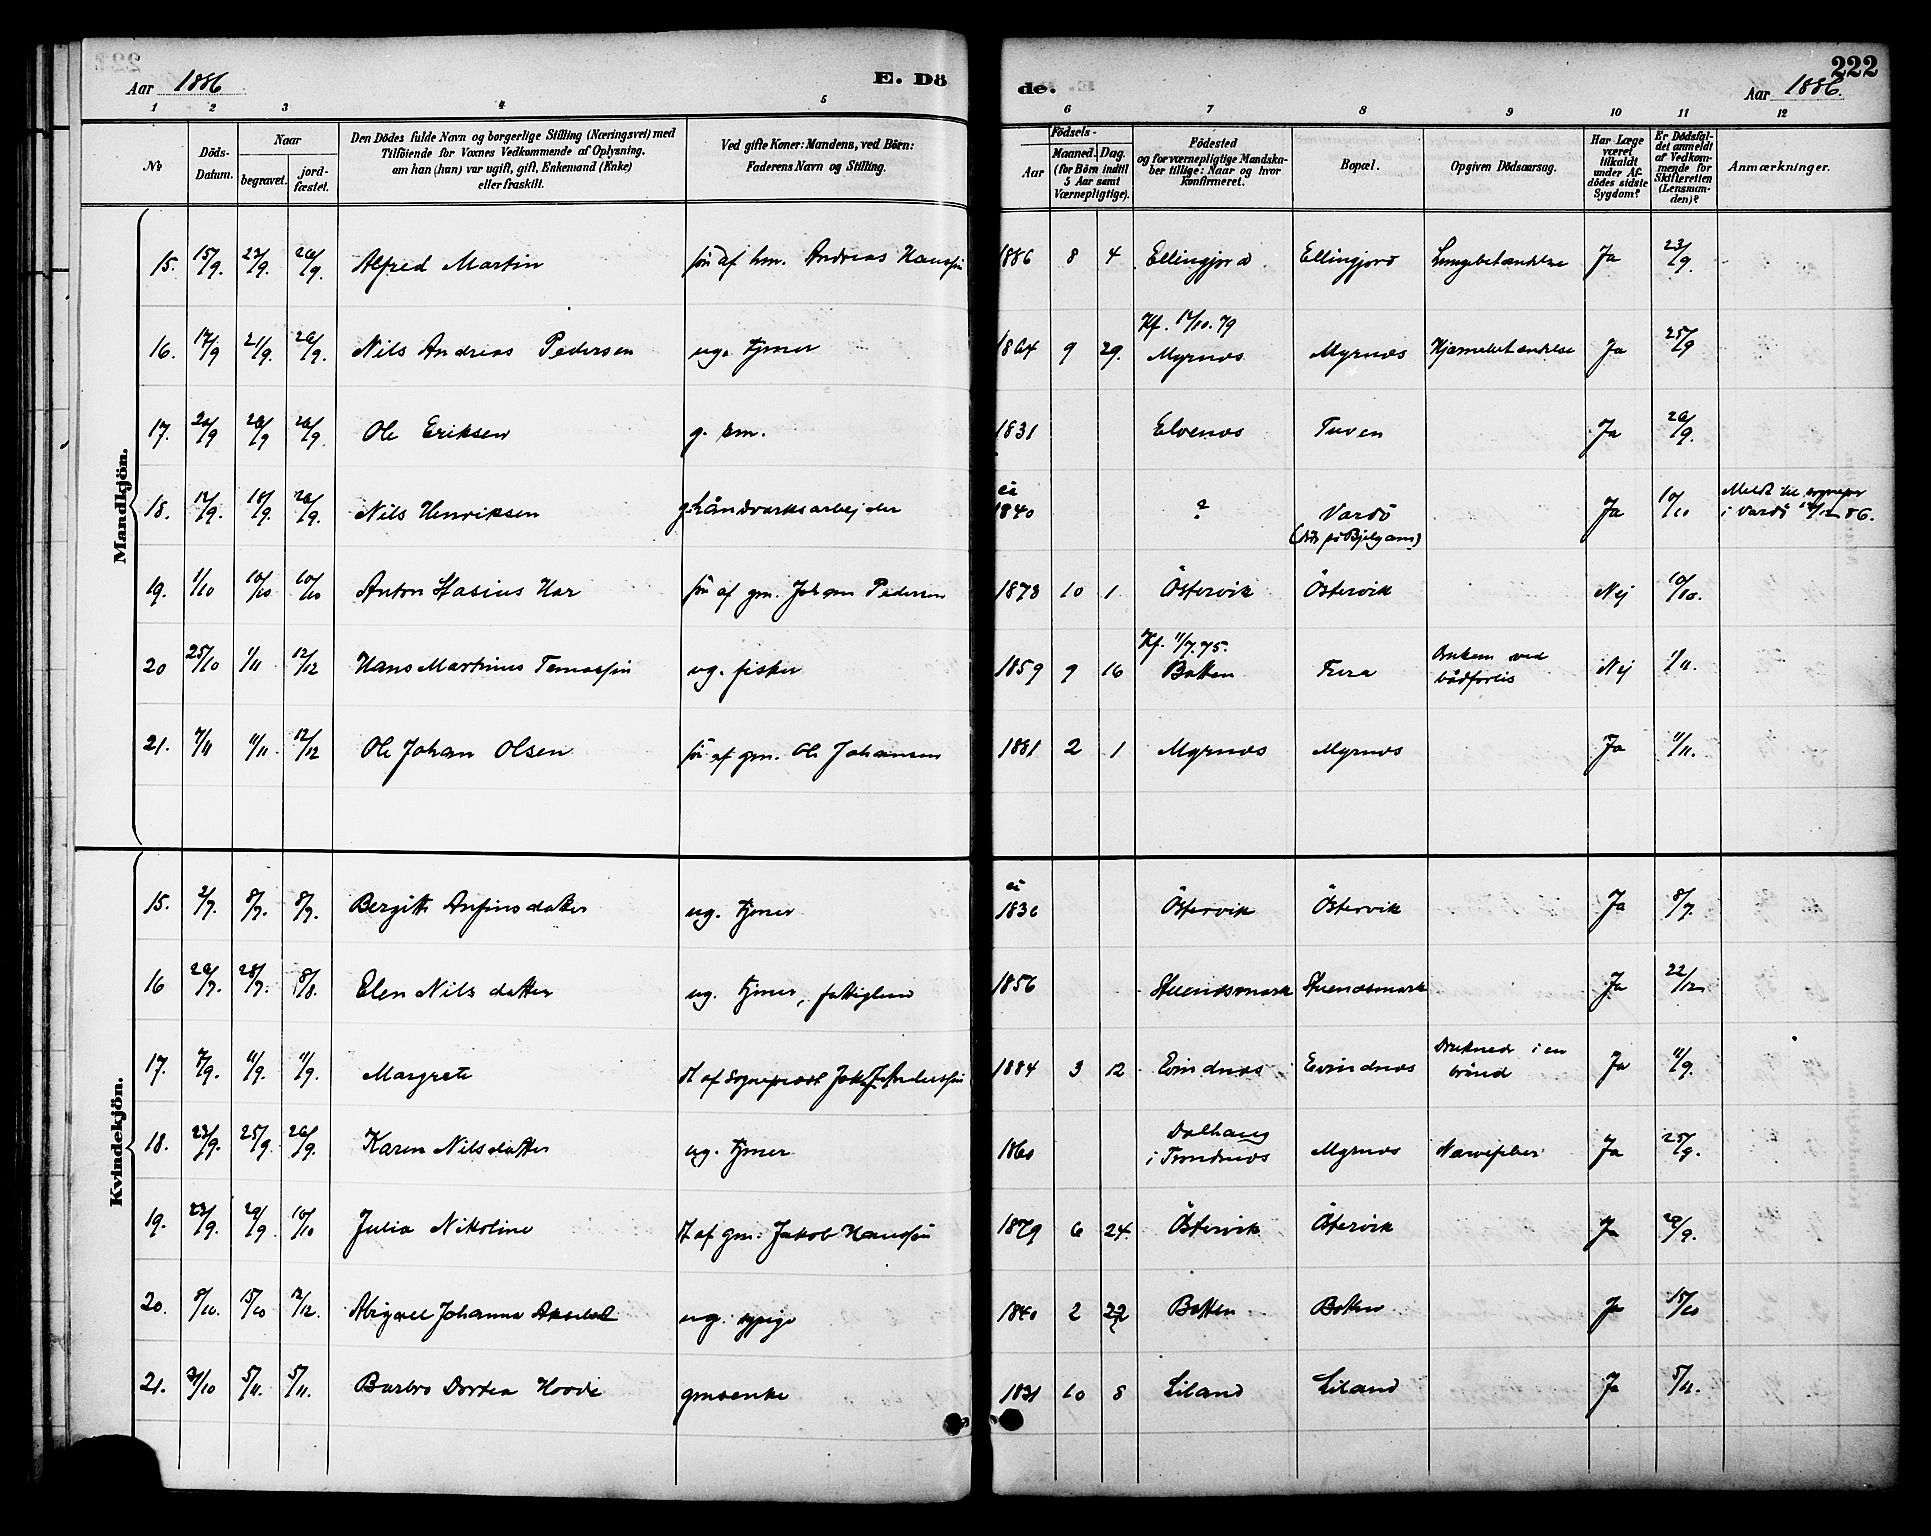 Aar 1886
E. Dö
de.
222
Aar 1886.
1 2 3 4 5 6 7 8 9 10 11 12
№
Döds-
Datum.
Naar
begravet.
jord-
fæstet.
Den Dödes fulde Navn og borgerlige Stilling (Næringsvei) med
Tilföiende for Voxnes Vedkommende af Oplysning.
om han (hun) var ugift, gift, Enkemand (Enke)
eller fraskilt.
Ved gifte Koner: Mandens, ved Börn:
Faderens Navn og Stilling.
Födsels-
Aar
Maaned.
Dag.
(for Börn indtil
5 Aar samt
Værnepligtige).
Födested
og for værnepligtige Mandska-
ber tillige: Naar og hvor
konfirmeret.
Bopæl.
Opgiven Dödsaarsag.
Har Læge
været
tilkaldt
under Af-
dödes sidste
Sygdom?
Er Dödsfal-
det anmeldt
af Vedkom-
mende for
Skifteretten
(Lensman-
den)?
Anmærkninger.
Mandkjön.
15. 15/9. 22/9. 26/9. Alfred Martin sön af hm. Andreas Hanssön 1886 8 4 Ellingjord Ellingjord Lungebetændelse Ja 23/9.
Kf. 12/10. 79
16. 17/9 21/9. 26/9. Nils Andreas Pedersen ug. tjener 1864 9 29. Myrnæs Myrnæs Hjernebetændelse Ja 25/9
17. 20/9 26/9 26/9. Ole Eriksen g. hm. 1831 Elvenæs Tuven Ja 26/9.
18. 12/9. 18/9. 26/9. Nils Henriksen g. håndværksarbejder ca 1840 ? Vardö Ja 10/10 Meldt til sognepr
i Vardö 86.
19. 1/10 10/10 10/10 Anton Stasius Har sön af gm. Johan Pedersen 1873 10 1 Östervik Östervik Nej 10/10.
Kf. 11/7. 75.
20 25/10 1/11 12/12 Hans Martinus Tomassön ug. fisker 1859 9 16 Botten Omkom ved
bådforlis Nej 1/11.
21. 7/11 11/11. 12/12 Ole Johan Olsen sön af gm. Ole Johansen 1881 2 1 Myrnæs Myrnæs Ja 11/11.
Kvindekjön.
15. 2/7. 8/7. 8/7. Bergitte Anfinsdatter ug. tjener ca 1836 Östervik Östervik Ja 8/7.
16 20/7. 28/7. 8/8. Elen Nilsdatter ug. tjener, fattiglem 1856 Ja 22/12
17. 7/9. 11/9. 11/9. Margrete dt af Sogneprest 1884 3 12 Evindnæs Evindnæs Druknede i en
brönd Ja 11/9.
18. 23/9. 25/9 26/9. Karen Nilsdatter ug. tjener 1860 Dalhaug
i Trondnæs Myrnæs Nervefeber Ja 25/9.
19. 23/9. 29/9. 10/10 Julia Nikoline dt af gm. Jakob Hanssön 1879 6 24. Östervik Östervik Ja 29/9.
20. 8/10. 15/10 12/12. Abigael Johanna ug. sypige 1840 2 22 Botten Botten Ja 15/10
21. 5/11. 5/11. Barbro Dortea gmsenke 1831 10 8 Liland Liland Ja 5/11.